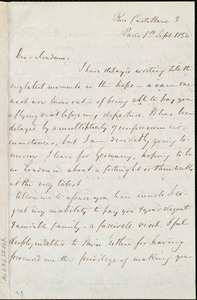 Rue Castellane 3
Paris 1st Sept. 1854
Dear Madam,
I have delayed writing till the
very latest moments in the hope - a vain one
as it now turns out - of being able to pay you
a flying visit before my departure. I have been
delayed by a multiplicity of unforeseen cir-
cumstances, but I am decidedly going to
morrow. I leave for Germany, hoping to be
in London in about a fortnight or three weeks
at the very latest.
Allow me to assure you how much I re-
gret my inability to pay you & your
amiable family, a farewell visit. I feel
deeply indebted to Miss for having
procured me the privilege of making your